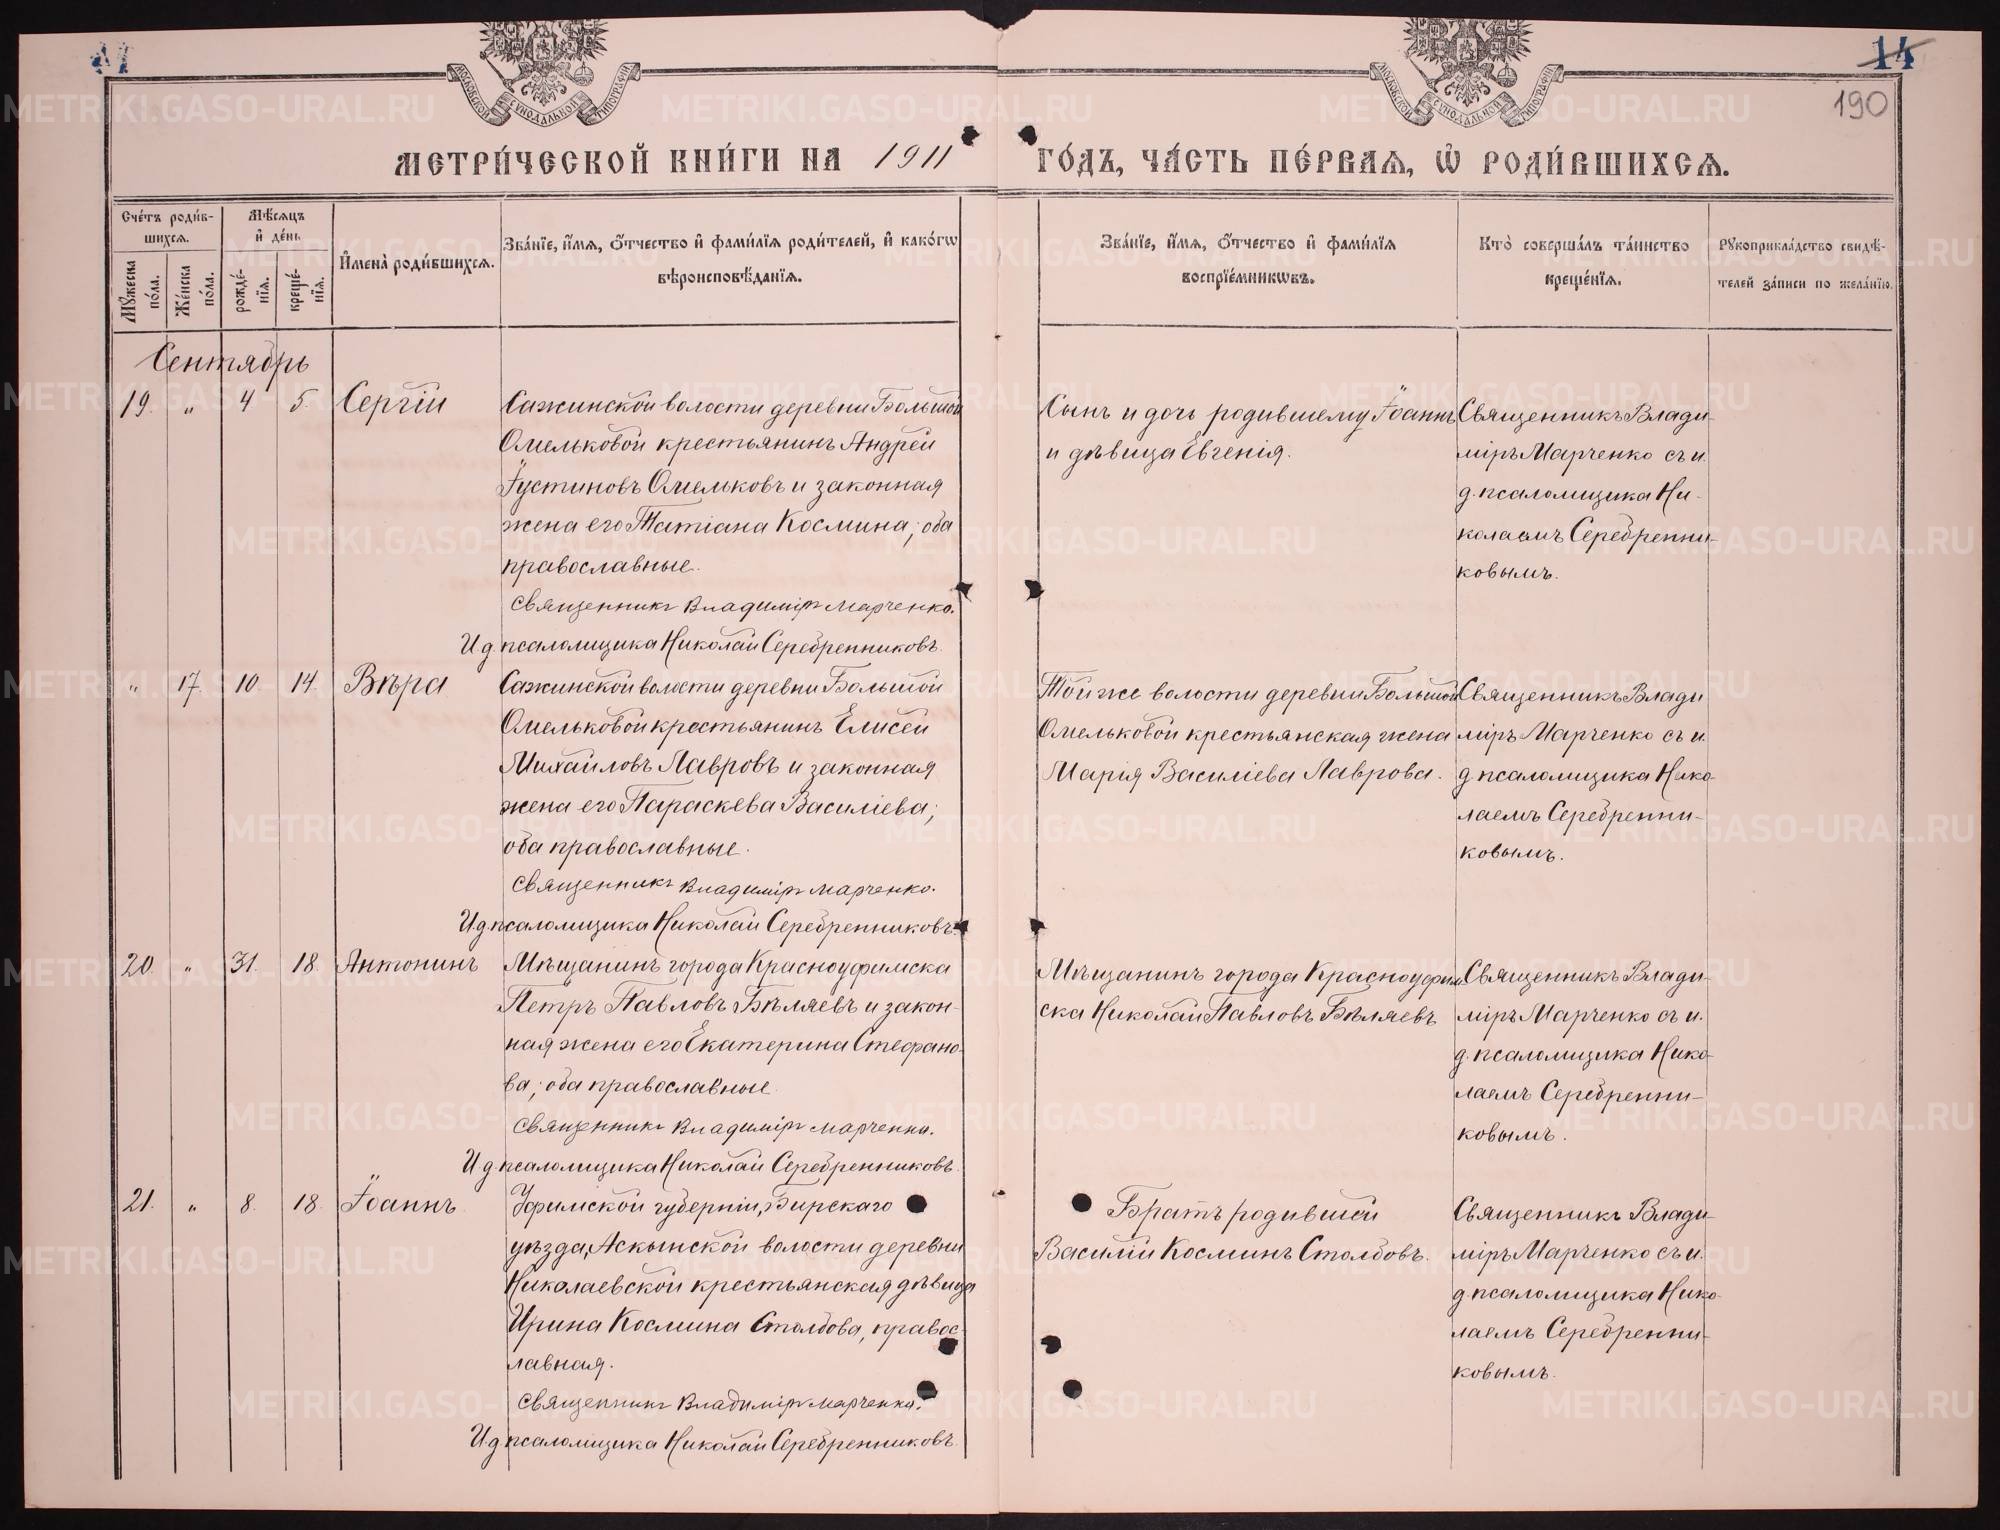 14
190
МОСКОВСКОЙ СѴНОДАЛЬНОЙ ТИПОГРАФІИ
МОСКОВСКОЙ СѴНОДАЛЬНОЙ ТИПОГРАФІИ
МЕТРИ́ЧЕСКОЙ КНИ́ГИ НА 1911 ГО́ДЪ, ЧА́СТЬ ПЕ́РВАѦ, Ѽ РОДИ́ВШИХСѦ.
Сче́тъ роди́в-
шихсѧ.
Мѣ́сѧцъ
и҆ де́нь
Мꙋ́жеска
по́ла.
Же́нска
по́ла.
рожде́-
нїѧ.
креще́-
нїѧ.
И҆мена̀ роди́вшихсѧ.
Зва́нїе, и҆́мѧ, ѻ҆́тчество и҆ фами́лїѧ роди́телей, и҆ како́гѡ
вѣроисповѣ́данїѧ.
Зва́нїе, и҆́мѧ, ѻ҆́тчество и҆ фами́лїѧ
воспрїе́мникѡвъ.
Кто̀ соверша́лъ та́инство
креще́нїѧ.
Рꙋкоприкла́дство свидѣ́-
телей за́писи по жела́нїю.
Сентябрь
19. " 4 5. Сергій
Сажинской волости деревни Большой
Омельковой крестьянинъ Андрей
Іустиновъ Омельковъ и законная
жена его Татіана Космина; оба
православные.
Священникъ Владиміръ Марченко.
И. д. псаломщика Николай Серебренниковъ.
Сынъ и дочь родившему Іоаннъ
и дѣвица Евгенія.
Священникъ Влади-
міръ Марченко съ и.
д. псаломщика Ни-
колаемъ Серебренни-
ковымъ.
" 17. 10 14. Вѣра
Сажинской волости деревни Большой
Омельковой крестьянинъ Елисей
Михайловъ Лавровъ и законная
жена его Параскева Василіева;
оба православные.
Священникъ Владиміръ Марченко.
И. д. псаломщика Николай Серебренниковъ.
Той же волости деревни Большой
Омельковой крестьянская жена
Марія Василіева Лаврова.
Священникъ Влади
міръ Марченко съ и.
д. псаломщика Нико-
лаемъ Серебренни-
ковымъ.
20. " 31. 18. Антонинъ
Мѣщанинъ города Красноуфимска
Петръ Павловъ Бѣляевъ и закон-
ная жена его Екатерина Стефано-
ва; оба православные
Священникъ Владиміръ Марченко.
И. д. псаломщика Николай Серебренниковъ.
Мѣщанинъ города Красноуфим
ска Николай Павловъ Бѣляевъ
Священникъ Влади-
міръ Марченко съ и.
д. псаломщика Нико-
лаемъ Серебренни-
ковымъ.
21. " 8. 18. Іоаннъ
Уфимской губерніи, Бирскаго
уѣзда, Аскынской волости деревни
Николаевской крестьянская дѣвица
Ирина Космина Столбова, правос-
лавная.
Священникъ Владиміръ Марченко.
И. д. псаломщика Николай Серебренниковъ.
Братъ родившей
Василій Косминъ Столбовъ.
Священникъ Влади-
міръ Марченко съ и.
д. псаломщика Нико-
лаемъ Серебренни-
ковымъ.
METRIKI.GASO-URAL.RU